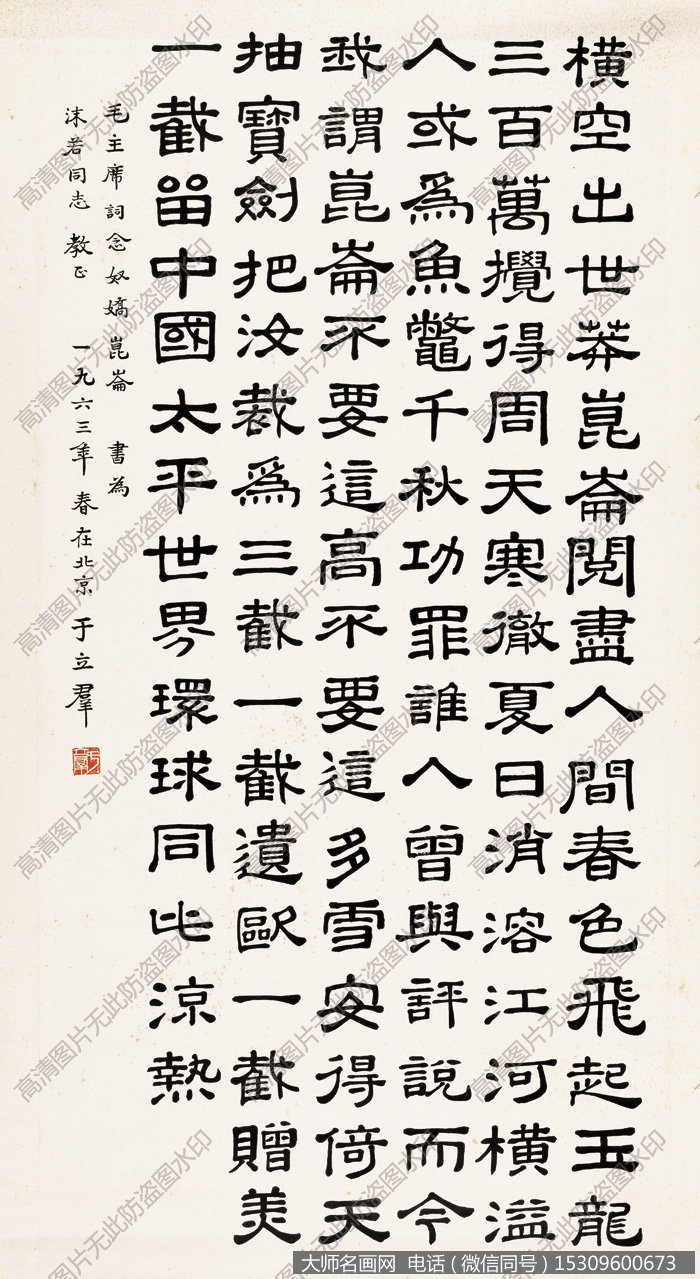 橫空出世莽崑崙閱盡人間春色飛起玉龍
三百萬攪得周天寒徹夏日消溶江河橫溢
人或爲魚鼈千秋功罪誰人曾與評說而今
我謂崑崙不要這高不要這多雪安得倚天
抽寶劍把汝裁爲三截一截遺歐一截贈美
一截留中國太平世界環球同此涼熱
毛主席詞念奴嬌崑崙 書為
沫若同志 教正 一九六三年春在北京 于立羣
高清图片无此防盗图水印
大师名画网 电话（微信同号）15309600673